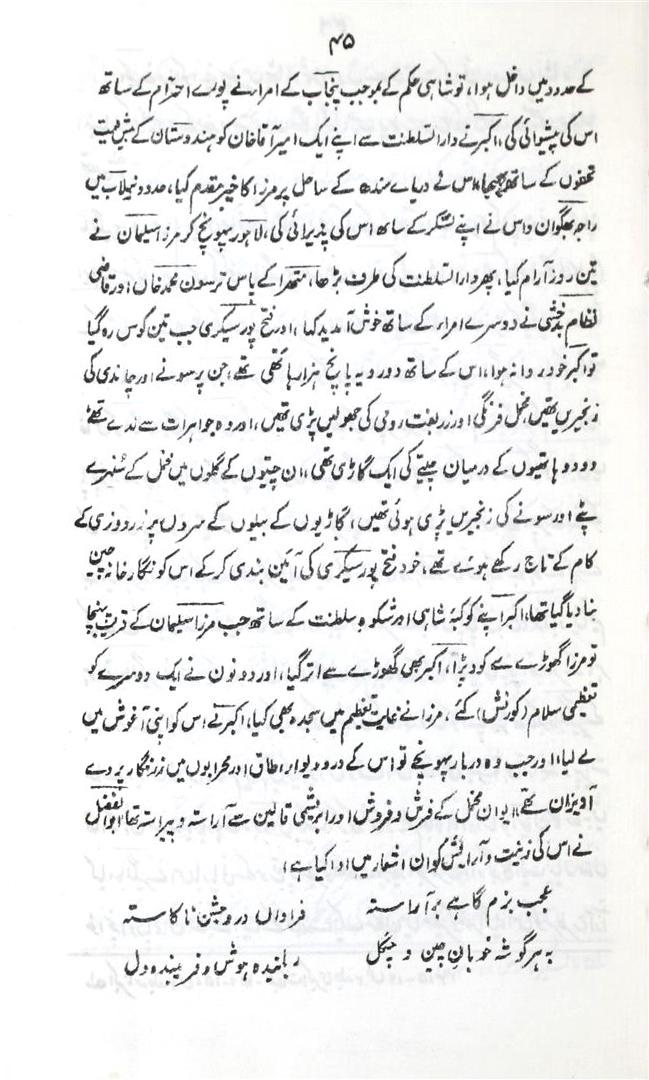 ۴۵
کے حدود میں داخل ہوا، تو شاہی حکم کے بموجب پنجاب کے امراء نے پورے احترام کے ساتھ
اس کی پیشوائی کی، اکبر نے دار السلطنت سے اپنے ایک امیر آقا خان کو ہندوستان کے بیش قیمت
تحفوں کے ساتھ بھیجا، اس نے دریاے سندھ کے ساحل پر مرزا کا خیر مقدم کیا، حدود نیلاب میں
راجہ بھگوان داس نے اپنے لشکر کے ساتھ اس کی پذیرائی کی، لاہور پہونچ کر مرزا سلیمان نے
تین روز آرام کیا، پھر دار السلطنت کی طرف بڑھا، متھرا کے پاس ترسون محمد خاں اور قاضی
نظام بدخشی نے دوسرے امراء کے ساتھ خوش آمدید کہا، اور فتح پور سیکری جب تین کوس رہ گیا
تو اکبر خود روانہ ہوا، اس کے ساتھ دور ویہ پانچ ہزار ہاتھی تھے، جن پر سونے اور چاندی کی
زنجیریں تھیں، مخمل فرنگی اور زربفت رومی کی جھولیں پڑی تھیں، اور وہ جواہرات سے لدے تھے،
دو دو ہاتھیوں کے درمیان چیتے کی ایک گاڑی تھی، ان چیتوں کے گلوں میں مخمل کے سُنہرے
پٹے اور سونے کی زنجیریں پڑی ہوئی تھیں، گاڑیوں کے بیلوں کے سروں پر زردوزی کے
کام کے تاج رکھے ہوئے تھے، خود فتح پور سیکری کی آئین بندی کر کے اس کو نگار خانہ چین
بنا دیا گیا تھا، اکبر اپنے کوکبۂ شاہی اور شکوہ سلطنت کے ساتھ جب مرزا سلیمان کے قریب پہنچا
تو مرزا گھوڑے سے کود پڑا، اکبر بھی گھوڑے سے اتر گیا، اور دونون نے ایک دوسرے کو
تعظیمی سلام (کورنش) کئے، مرزا نے غایت تعظیم میں سجدہ بھی کیا، اکبر نے اس کو اپنی آغوش میں
لے لیا، اور جب وہ دربار پہونچے تو اس کے در و دیوار اطاق اور محرابوں میں زرنگار پردے
آویزان تھے، ایوان مخمل کے فرش و فروش اور ابریشمی قالین سے آراستہ و پیراستہ تھا، ابو الفضل
نے اس کی زینت و آرایش کو ان اشعار میں ادا کیا ہے،
عجب بزم گاہے بر آراستہ فراواں درو جشن نا کاستہ
بہ ہر گوشہ خوبان چین و چگل ربانیدہ ہوش و فریبندہ دل